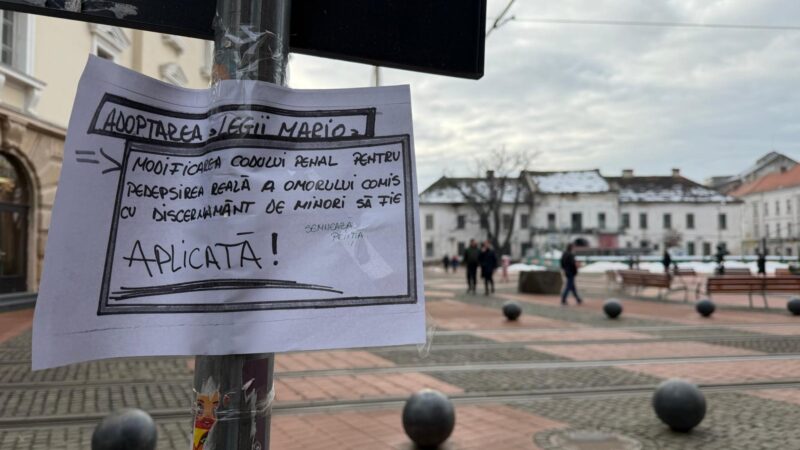 ADOPTAREA „LEGII MARIO”
=> MODIFICAREA CODULUI PENAL PENTRU
PEDEPSIREA REALĂ A OMORULUI COMIS
CU DISCERNĂMÂNT DE MINORI SĂ FIE
SEMNEAZĂ
PETIȚIA
APLICATĂ!